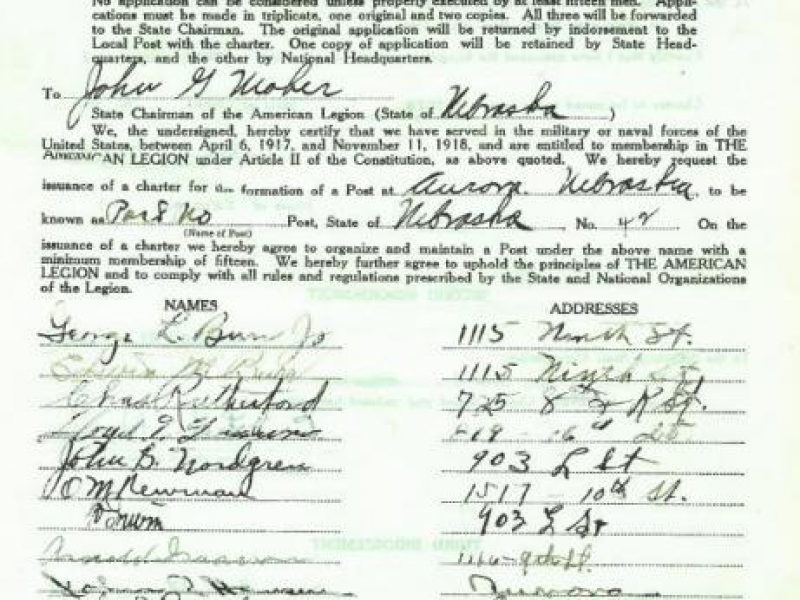 No application can be considered unless properly executed by at least fifteen men. Appli-
cations must be made in triplicate, one original and two copies. All three will be forwarded
to the State Chairman. The original application will be returned by indorsement to the
Local Post with the charter. One copy of application will be retained by State Head-
quarters, and the other by National Headquarters.
To John G Maher
State Chairman of the American Legion (State of Nebraska)
We, the undersigned, hereby certify that we have served in the military or naval forces of the
United States, between April 6, 1917, and November 11, 1918, and are entitled to membership in THE
AMERICAN LEGION under Article II of the Constitution, as above quoted. We hereby request the
issuance of a charter for the formation of a Post at Aurora, Nebraska, to be
known as Post No Post, State of Nebraska, No. 42 On the
(Name of Post)
issuance of a charter we hereby agree to organize and maintain a Post under the above name with a
minimum membership of fifteen. We hereby further agree to uphold the principles of THE AMERICAN
LEGION and to comply with all rules and regulations prescribed by the State and National Organizations
of the Legion.
NAMES ADDRESSES
George L. Burr Jr 1115 Ninth St.
Edwin M 1115 Ninth St
Chas Rutherford 725 K St.
Lloyd 16 St.
John B. Nordgren 903 L St
C M Newman 1517 - 10th St.
903 L St
Arnold 1116 - 9th St.
Aurora